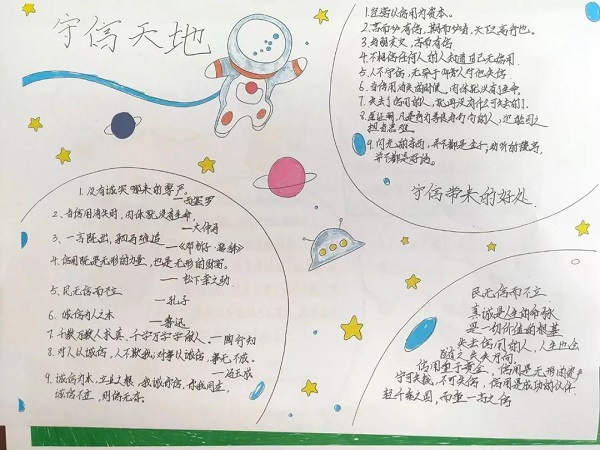 守信天地
1.经营以信用为资本。
2.言而必有信,期而必当,天下之高行也。
3.与朋友交,言而有信
4.不相信任何人的人知道自己无信用
5.人不守信,无异于
6.当信用消失的时候,肉体就没有生命。
7.失去了信用的人,就再没有什么可失的了。
8.
担当患难
9.闪光的东西,并不都是金子;动听的语言,
并不都是好话。
守信带来的好处
1.没有诚实哪来的尊严。
——西塞罗
2、当信用消失时,肉体就没有生命。
——大仲马
3、一言既出,驷马难追
——《邓析子·
4、信用既是无形的力量,也是无形的财富。
——松下幸之助
5、民无信而不立
——孔子
6、诚信为人之本
——鲁迅
7、千教万教人求真,千学万学学做人。——陶行知
8、对人以诚信,人不欺我;对事以诚信,事无不成。
——冯玉祥
9、诚信为本,
诚信不立,
民无信而不立
真诚是人生的命脉
是一切价值的根基
失去信用的人,人生也会
随之失去方向
信用重于黄金,信用是无形的资产
宁可失钱,不可失信,信用是成功的伙伴
轻千乘之国,而重一言之信